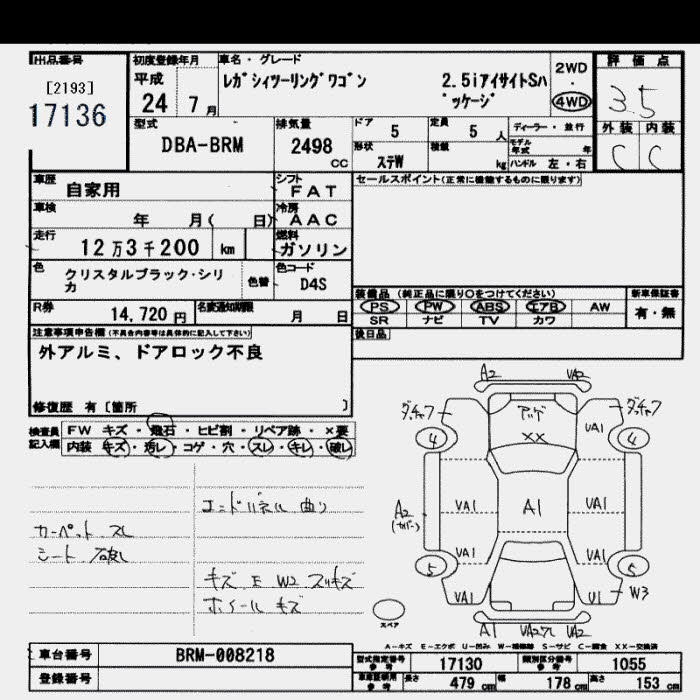 出品番号
[2193]
17136
初度登録年月
平成
24 7月
車名・グレード
レガシィツーリングワゴン 2.5iアイサイトSパッケージ
2WD
4WD
評価点
3.5
外装 内装
C C
型式
DBA-BRM
排気量
2498
CC
ドア
5
定員
5 人
ディーラー・並行
形状
ステW
積載
kg
モデル年式 年
ハンドル 左・右
車歴
自家用
シフト
FAT
セールスポイント(正常に機能するものに限ります)
車検
年 月( 日)
冷房
AAC
走行
12万3千200 km
燃料
ガソリン
色
クリスタルブラック・シリカ
色替
色コード
D4S
装備品 (純正品に限り○をつけてください)
PS PW ABS エアB AW
SR ナビ TV カワ
新車保証書
有・無
R券
14,720円
名変通知期限
月 日
後日品
注意事項申告欄(不具合内容等は具体的に記入して下さい)
外アルミ、ドアロック不良
修復歴 有 [箇所 ]
検査員記入欄
FW キズ・飛石・ヒビ割・リペア跡・×要
内装 キズ・汚レ・コゲ・穴・スレ・キレ・破レ
エンドパネル 曲り
カーペット スレ
シート 破レ
キズ E W2 スリキズ
ホイール キズ
A2 VA2
ダッチャフ ダッチャフ
アッパゲ VA1
XX
4 4
VA1 A1 VA1
A2
(カバー)
VA1 VA1
5 5
VA1 U1 W3
スペア
A1 VA2ワレ VA2
A-キズ E-エクボ U-凹み W-補修跡 S-サビ C-腐食 XX-交換済
車台番号 BRM-008218
登録番号
型式指定番号参考 17130
類別区分番号参考 1055
車車検証用参考 長さ 479cm 幅 178cm 高さ 153cm